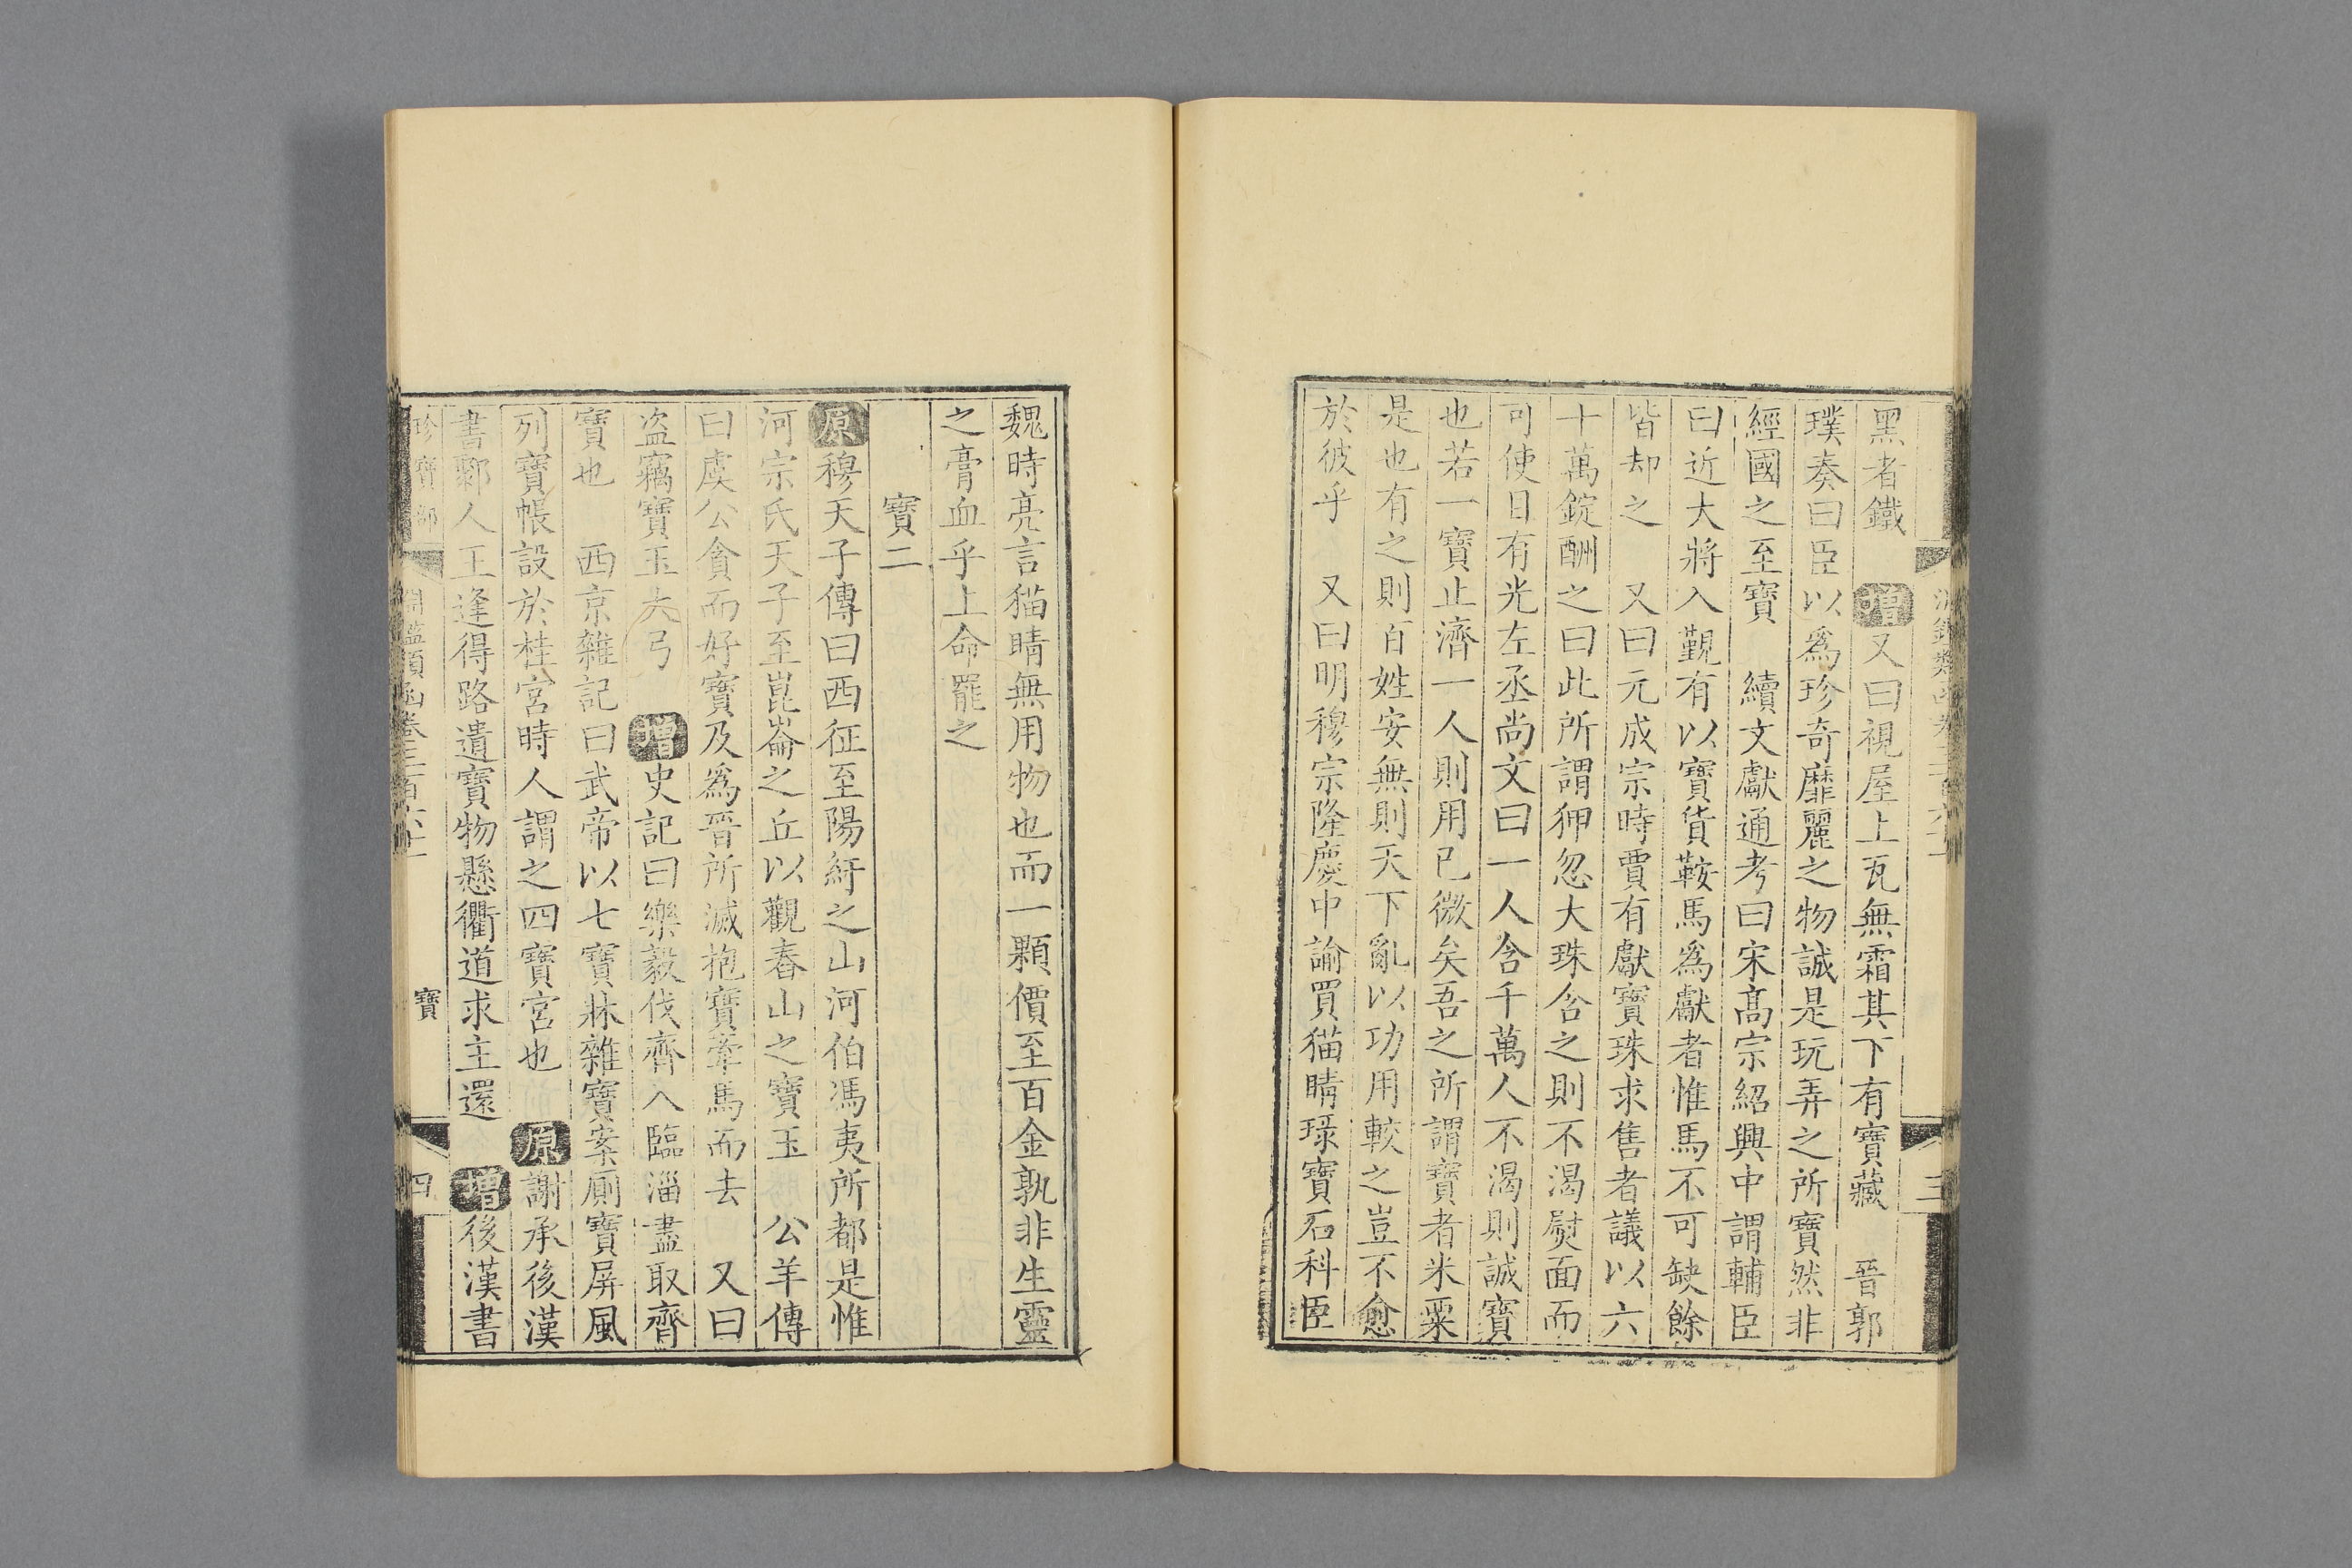 黑者鐵　增又曰視屋上瓦無霜其下有寶藏　晉郭
璞奏曰臣以爲珍奇靡麗之物誠是玩弄之所寶然非
經國之至寶　續文獻通考曰宋高宗紹興中謂輔臣
曰近大將入覲有以寶貨鞍馬爲獻者惟馬不可缺餘
皆却之　又曰元成宗時賈有獻寶珠求售者議以六
十萬錠酬之曰此所謂狎忽大珠含之則不渴熨面而
可使目有光左丞尚文曰一人含千萬人不渴則誠寶
也若一寶止濟一人則用已微矣吾之所謂寶者米粟
是也有之則百姓安無則天下亂以功用較之豈不愈
於彼乎　又曰明穆宗隆慶中諭買猫睛琭寶石科臣
三
魏時亮言猫睛無用物也而一顆價至百金孰非生靈
之膏血乎上命罷之
寶二
原穆天子傳曰西征至陽紆之山河伯馮夷所都是惟
河宗氏天子至崑崙之丘以觀舂山之寶玉　公羊傳
曰虞公貪而好寶及爲晉所滅抱寶牽馬而去　又曰
盜竊寶玉大弓　增史記曰樂毅伐齊入臨淄盡取齊
寶也　西京雜記曰武帝以七寶牀雜寶案廁寶屏風
列寶帳設於桂宮時人謂之四寶宮也　原謝承後漢
書鄴人王逢得路遺寶物懸衢道求主還　增後漢書
珍寶部　淵鑑類函卷三百六十一　寶　四